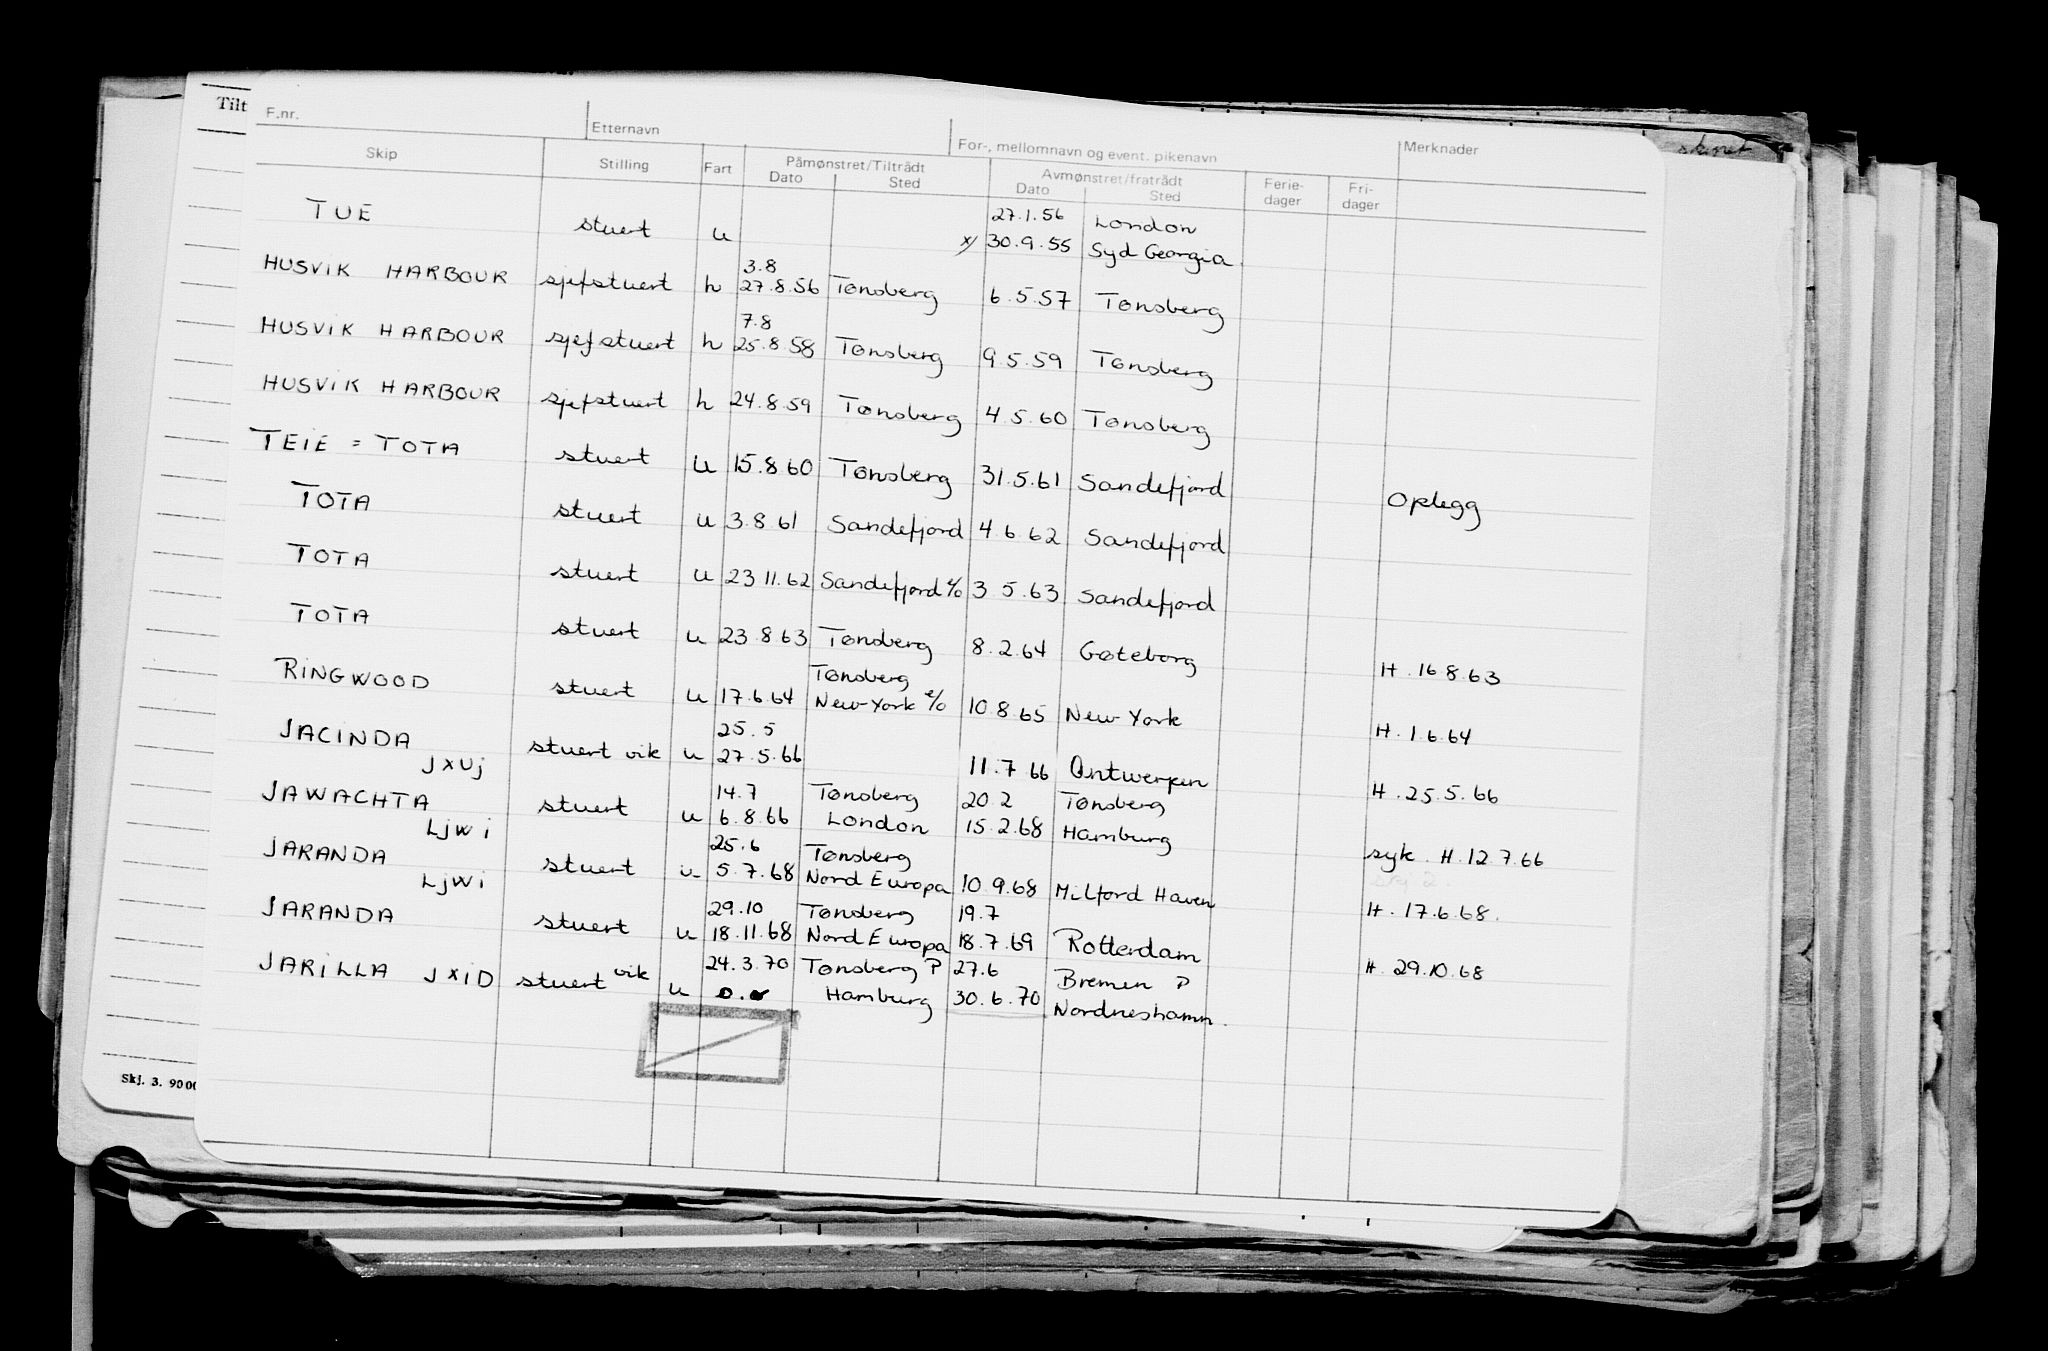 Tilt
F.nr. Etternavn For-, mellomnavn og event. pikenavn Merknader
Skip Stilling Fart Påmønstret/Tiltrådt Avmønstret/fratrådt Ferie- Fri-
Dato Sted Dato Sted dager dager
27.1.56 London
TUE stuert u x) 30.9.55 Syd Georgia.
3.8
HUSVIK HARBOUR sjefstuert h 27.8.56 Tønsberg 6.5.57 Tønsberg
7.8
HUSVIK HARBOUR sjefstuert h 25.8.58 Tønsberg 9.5.59 Tønsberg
HUSVIK HARBOUR sjefstuert h 24.8.59 Tønsberg 4.5.60 Tønsberg
TEIE = TOTA stuert u 15.8.60 Tønsberg 31.5.61 Sandefjord Oplegg
TOTA stuert u 3.8.61 Sandefjord 4.6.62 Sandefjord
TOTA stuert u 23.11.62 Sandefjord e/o 3.5.63 Sandefjord
TOTA stuert u 23.8.63 Tønsberg 8.2.64 Gøteborg H.16.8.63
Tønsberg
RINGWOOD stuert u 17.6.64 New-York e/o 10.8.65 New-York H.1.6.64
25.5
JACINDA stuert vik u 27.5.66 11.7.66 Antwerpen H.25.5.66
JXUJ
14.7 Tønsberg 20.2 Tønsberg
JAWACHTA stuert u 6.8.66 London 15.2.68 Hamburg syk. H.12.7.66
LJWI
25.6 Tønsberg
JARANDA stuert u 5.7.68 Nord Europa 10.9.68 Milford Haven H.17.6.68.
LJWI
29.10 Tønsberg 19.7
JARANDA stuert u 18.11.68 Nord Europa 18.7.69 Rotterdam H.29.10.68
24.3.70 Tønsberg P 27.6 Bremen P
JARILLA JXID stuert vik u Hamburg 30.6.70 Nordneshamn.
Skj. 3. 9000